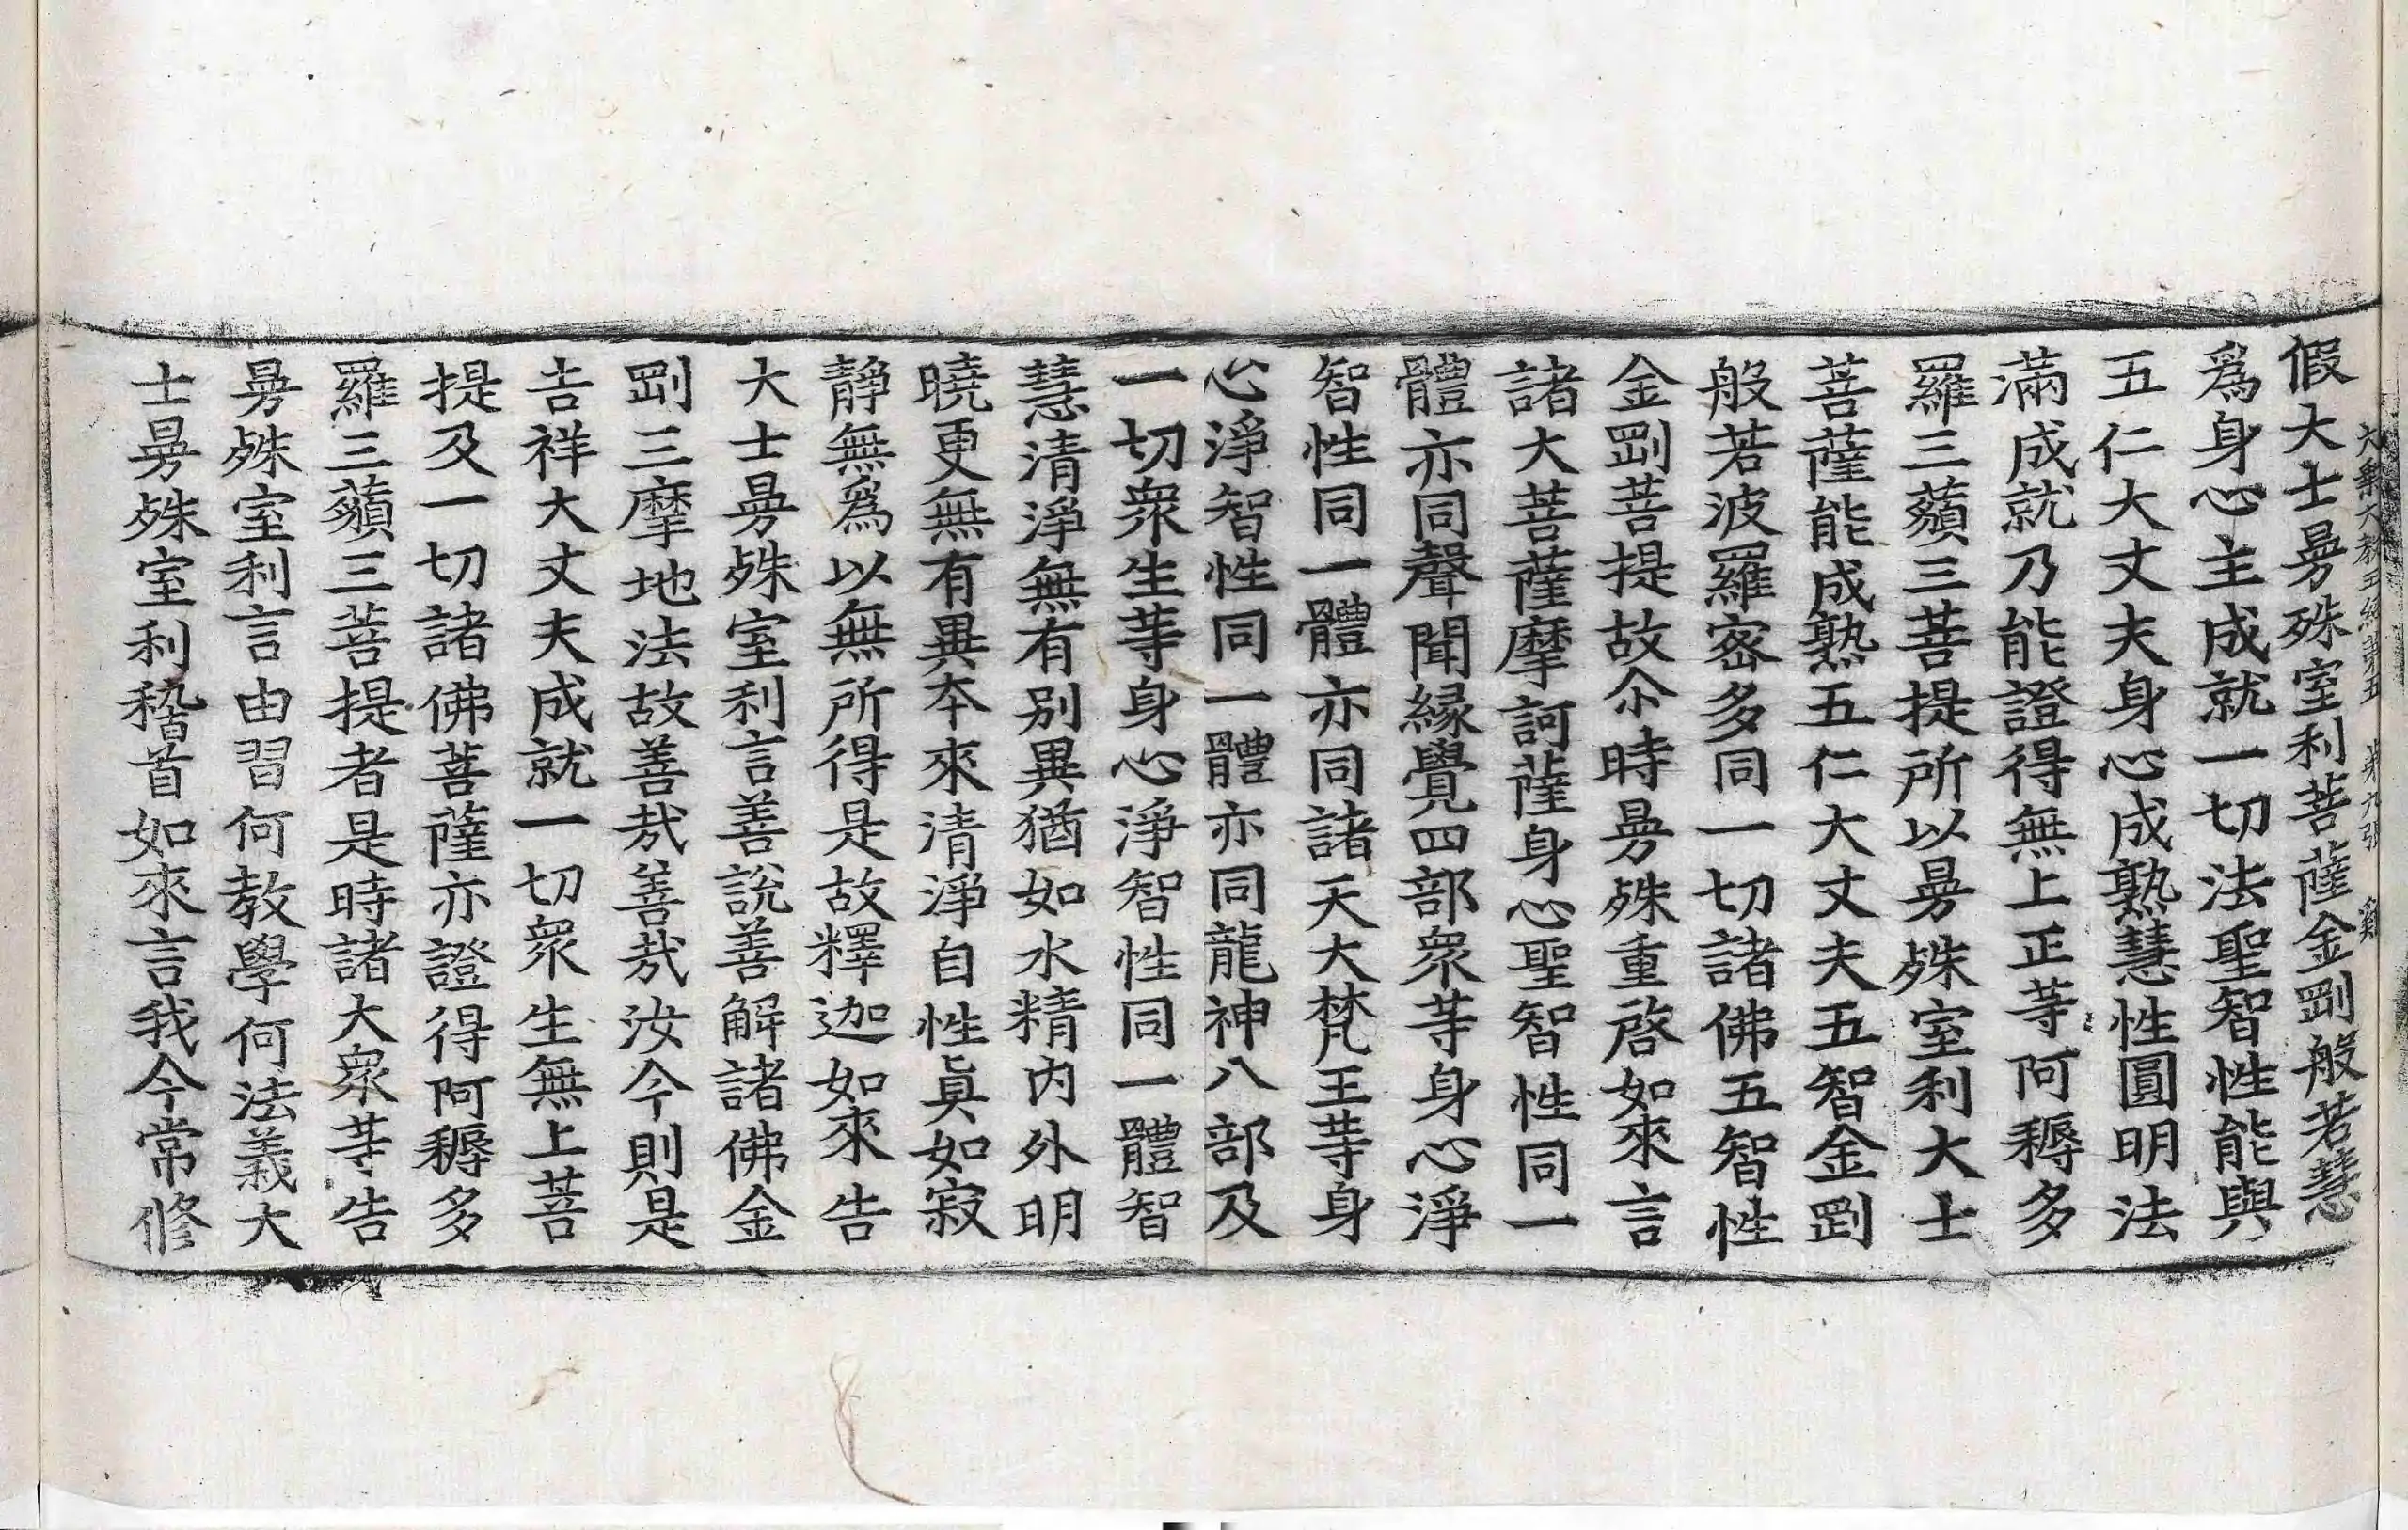 大乘大教王經第五 第六張 雞
假大士曼殊室利菩薩金剛般若慧
爲身心主成就一切法聖智性能與
五仁大丈夫身心成熟慧性圓明法
滿成就乃能證得無上正等阿耨多
羅三藐三菩提所以曼殊室利大士
菩薩能成熟五仁大丈夫五智金剛
般若波羅密多同一切諸佛五智性
金剛菩提故尒時曼殊重啓如來言
諸大菩薩摩訶薩身心聖智性同一
體亦同聲聞緣覺四部衆等身心淨
智性同一體亦同諸天大梵王等身
心淨智性同一體亦同龍神八部及
一切衆生等身心淨智性同一體智
慧清淨無有別異猶如水精内外明
曉更無有異本來清淨自性眞如寂
靜無爲以無所得是故釋迦如來告
大士曼殊室利言善說善解諸佛金
剛三摩地法故善哉善哉汝今則是
吉祥大丈夫成就一切衆生無上菩
提及一切諸佛菩薩亦證得阿耨多
羅三藐三菩提者是時諸大衆等告
曼殊室利言由習何教學何法義大
士曼殊室利稽首如來言我今常修